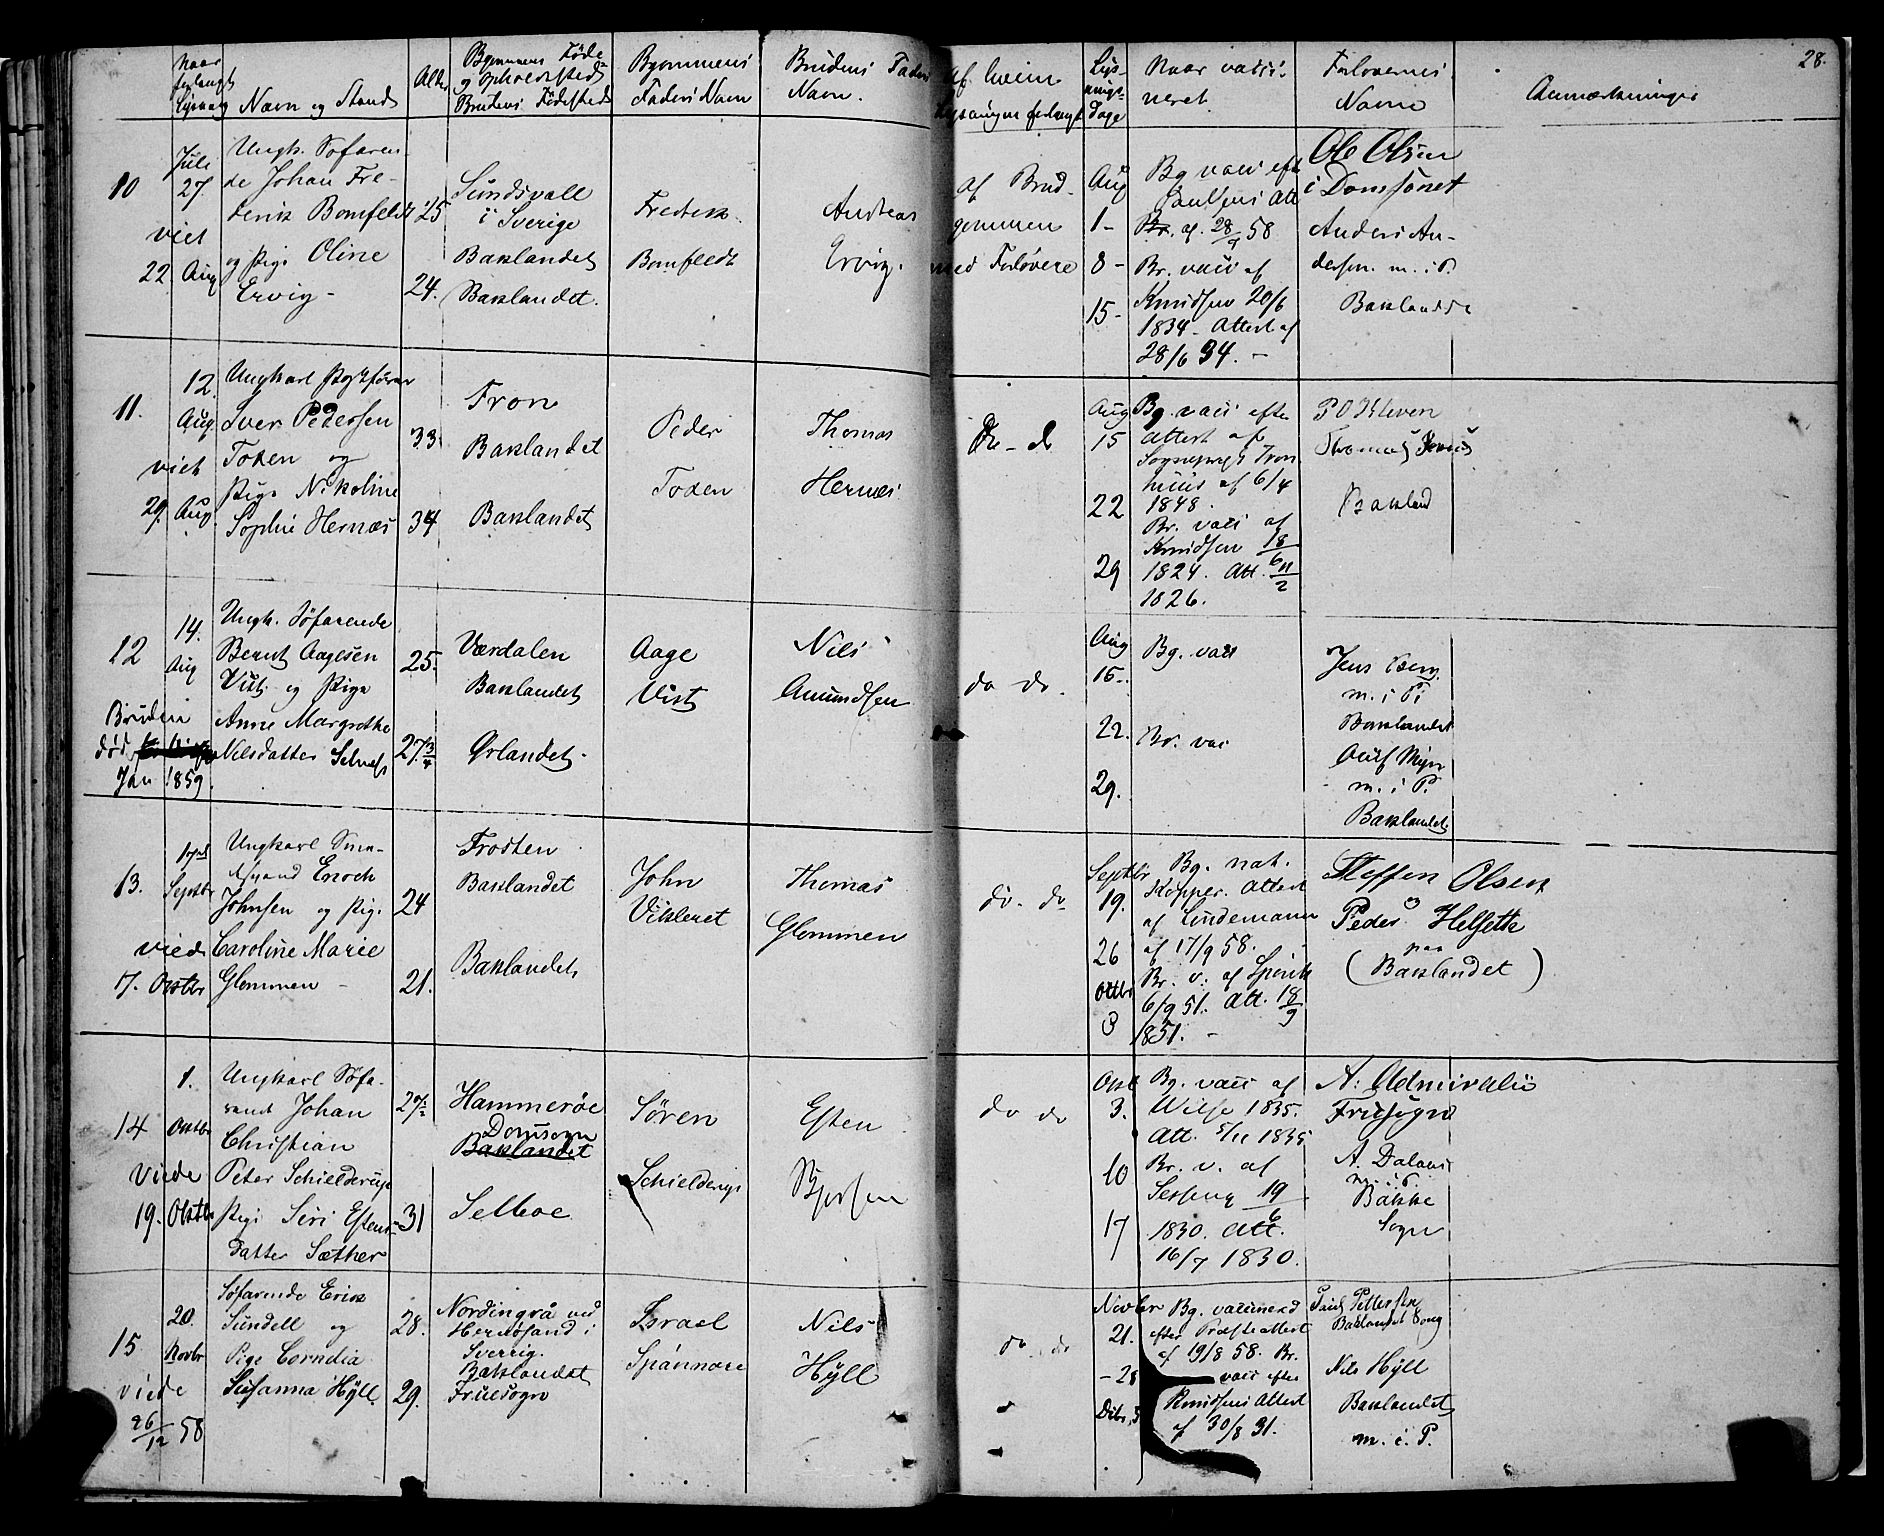 28.
Naar
forlangt
Lysning
Navn og Stand
Alder
Bgommens Føde-
og Opholdssted
Brudens Fødested
Bgommens
Faders Navn
Brudens Faders
Navn.
Af hvem
Lysningen forlangt
Lys-
nings-
Dage
Naar vacci-
neret.
Forlovernes
Navne
Anmærkninger
10
Juli
27.
viet
22. Aug
Ungk. Søfaren-
de Johan Fre-
derik Bomfeldt
og Pige Oline
Ervig-
25
24.
Sundsvall
i Sverige
Baklandet
Baklandet.
Frederik
Bomfeldt
Andreas
Ervig.
af Brud-
gommen
med Forlovere
Aug
1-
8-
15-
Bg vacc eft
Att
Br. af. 28/9 58
Br. vacc af
Knudsen 20/6
1834. Attest af
28/6 34. -
Ole Olsen
i Domsonet
Anders An-
dersen. m. i P.
Baklandet
11.
12.
Aug
viet
29. Aug.
Ungkarl
Iver Pedersen
Token og
Pige Nikoline
Sophie Hernæs
33
34
Fron
Baklandet
Baklandet
Peder
Token
Thomas
Hernæs
Do - do
Aug
15
22
29
Bg. vacc efter
Attest af
Sognepræst
af 6/4
1848.
Br. vacc af
Knudsen 18/6
1824. Att. 11/2
1826.
P O Kleven
Thomas
Bakland
12
14.
Aug
Bruden
død
Jan 1859.
Ungk. Søfarende
Bernt Aagesen
Vist og Pige
Anne Margrethe
Nilsdatter Selnes
25.
27 3/4
Værdalen
Baklandet
Ørlandet.
Aage
Vist
Nils
Amundsen
do do.
Aug
15-.
22.
29.
Bg. vacc
Br. vac
Jens
m. i P.
Baklandet
Oluf Myr
m. i P.
Baklandet
13.
17de
Septbr
vied
7. Octbr
Ungkarl Sme-
dsvend Enoch
Johnsen og Pige
Caroline Marie
Glemmen -
24
21.
Frosten
Baklandet
Baklandet,
John
Vikleret
Thomas
Glemmen
do. do
Septbr
19.
26
Octbr
3
Bg. nat.
Kopper. Attest
af Lindemann
af 17/9 58.
Br. v. af
6/9 51. Att. 18/9
1851. -
Steffen Olsen
Peder Helseth
paa
(Baklandet)
14
1.
Octbr
viede
19. Oktbr
Ungkarl Søfa-
rende Johan
Christian
Peter Schielderup
Pige Siri Estens-
datter Sæther
27½
31
Hammerøe
Domsogn
Baklandet
Selboe
Søren
Schielderup
Esten
do do
Okt
3.
10
17
Bg. vacc af
Wilse 1835.
Att. 5/11 1835
Br. v. af
19/6
1830. Att.
16/7 1830.
A. Admiralii
Fruesogn
A.
m. i P.
Bakke
Sogn
15
20.
Novbr
viede
26/12 58
Søfarende Erik
Sundell og
Pige Cornelia
Susanna Hÿll
28.
29.
Nordingrå ved
Hernösand i
Sverrig.
Baklandet
Fruesogn
Israel
Spännare
Nils
Hÿll
do do
Novbr
21.
- 28
Decbr 5
Bg. vaccinered
efter Præsteattest
af 19/8 58. Br.
vacc efter
Knudsens Attest
af 30/8 31.
Pettersen
Baklandet
Nils Hÿll
Baklandet
m. i. P.